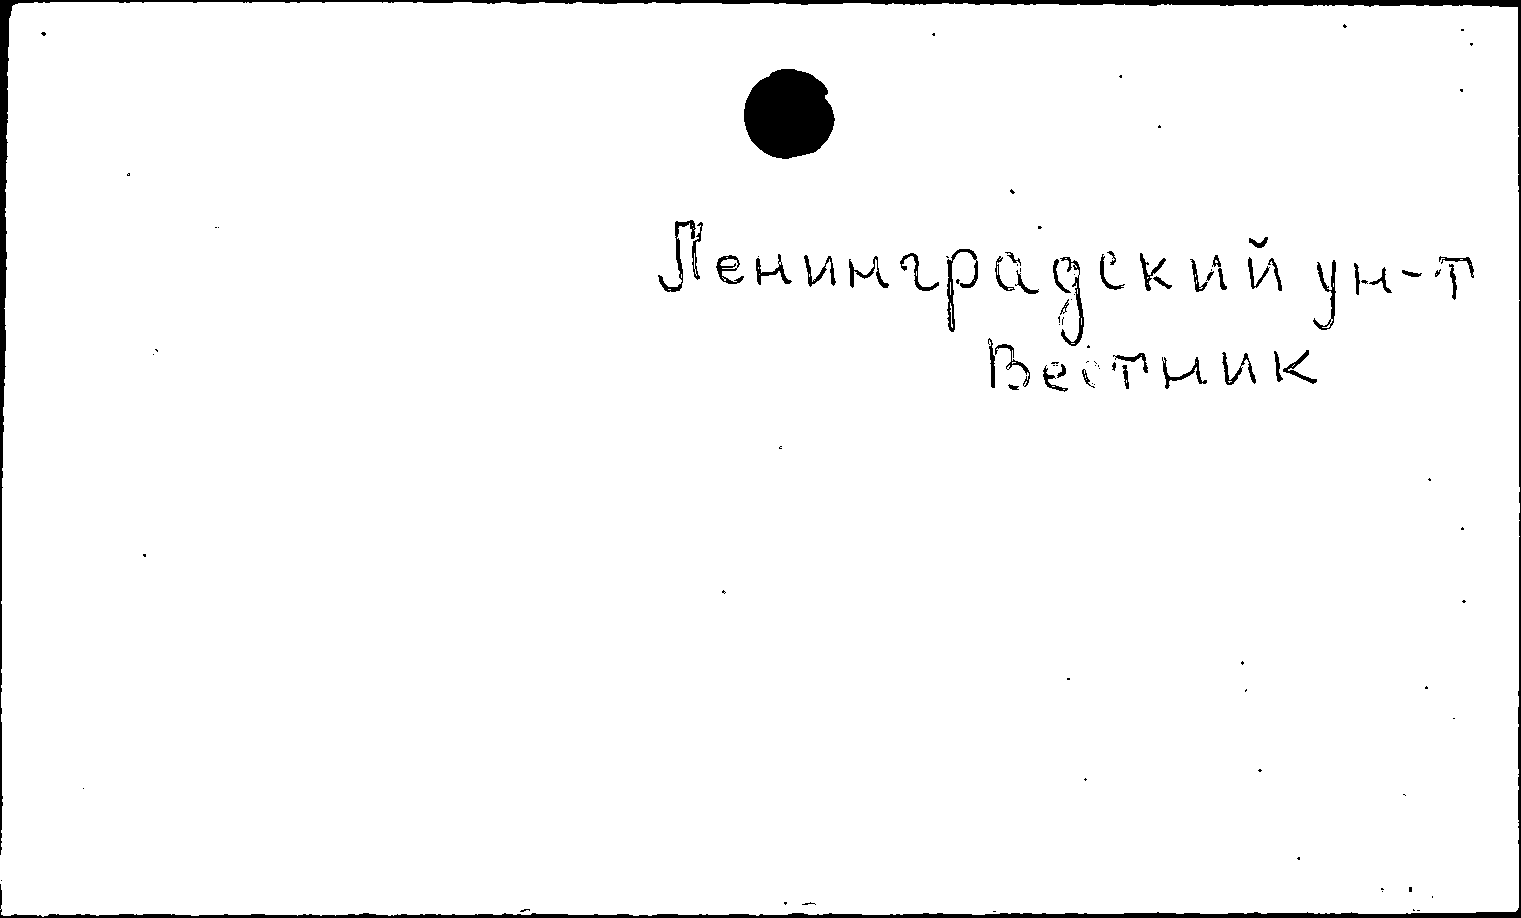 Ленинградский ун-т
Вестник